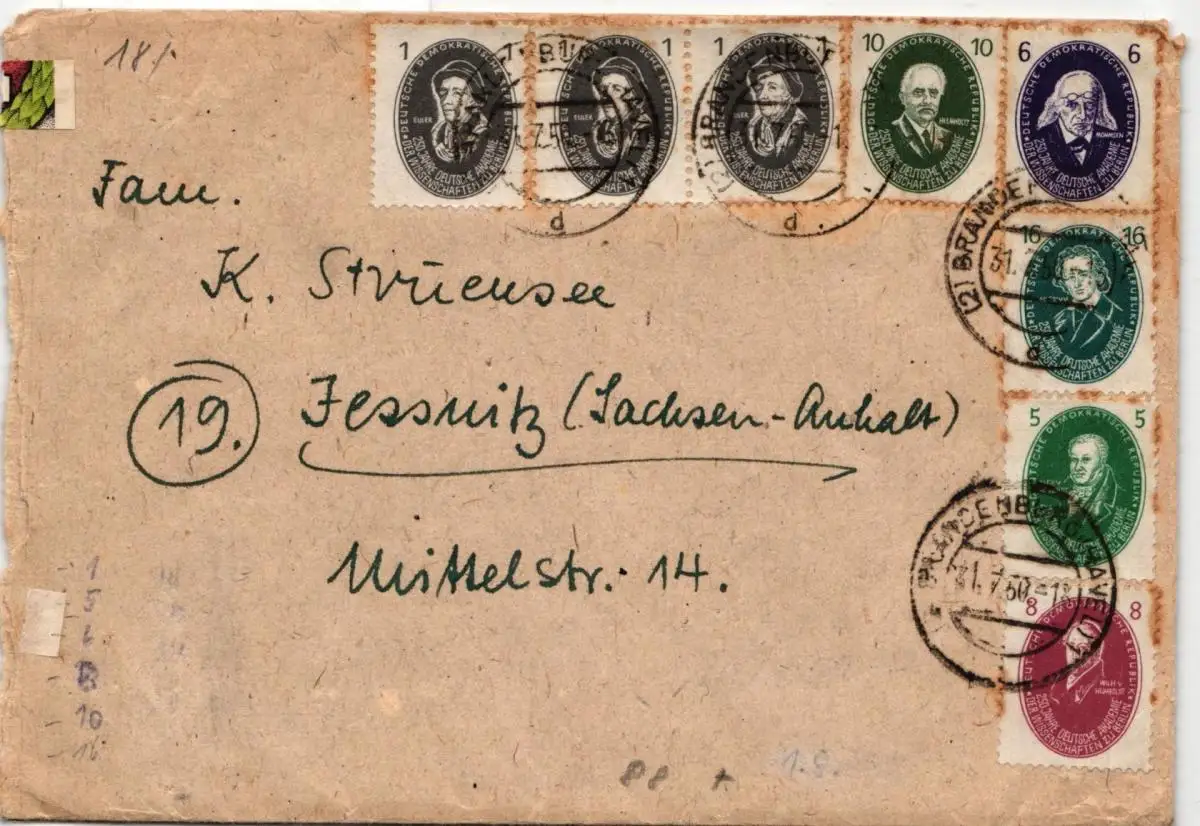 18/
1 1
DEUTSCHE DEMOKRATISCHE REPUBLIK
EULER
250 JAHRE DEUTSCHE AKADEMIE
DER WISSENSCHAFTEN ZU BERLIN
1 1
DEUTSCHE DEMOKRATISCHE REPUBLIK
EULER
250 JAHRE DEUTSCHE AKADEMIE
DER WISSENSCHAFTEN ZU BERLIN
1 1
DEUTSCHE DEMOKRATISCHE REPUBLIK
EULER
250 JAHRE DEUTSCHE AKADEMIE
DER WISSENSCHAFTEN ZU BERLIN
10 10
DEUTSCHE DEMOKRATISCHE REPUBLIK
HELMHOLTZ
250 JAHRE DEUTSCHE AKADEMIE
DER WISSENSCHAFTEN ZU BERLIN
6 6
DEUTSCHE DEMOKRATISCHE REPUBLIK
MOMMSEN
250 JAHRE DEUTSCHE AKADEMIE
DER WISSENSCHAFTEN ZU BERLIN
d
d
Fam.
K. Struensee
19.
Jessnitz (Sachsen-Anhalt)
Mittelstr. 14.
16 16
DEUTSCHE DEMOKRATISCHE REPUBLIK
250 JAHRE DEUTSCHE AKADEMIE
DER WISSENSCHAFTEN ZU BERLIN
(2) BRANDENBURG
31.7.50
d
5 5
DEUTSCHE DEMOKRATISCHE REPUBLIK
250 JAHRE DEUTSCHE AKADEMIE
DER WISSENSCHAFTEN ZU BERLIN
BRANDENBURG (HAVEL) 1
31.7.50
8 8
DEUTSCHE DEMOKRATISCHE REPUBLIK
WILH. V. HUMBOLDT
250 JAHRE DEUTSCHE AKADEMIE
DER WISSENSCHAFTEN ZU BERLIN
- 1
5
6
8
10
- 16
88 +
1.8.